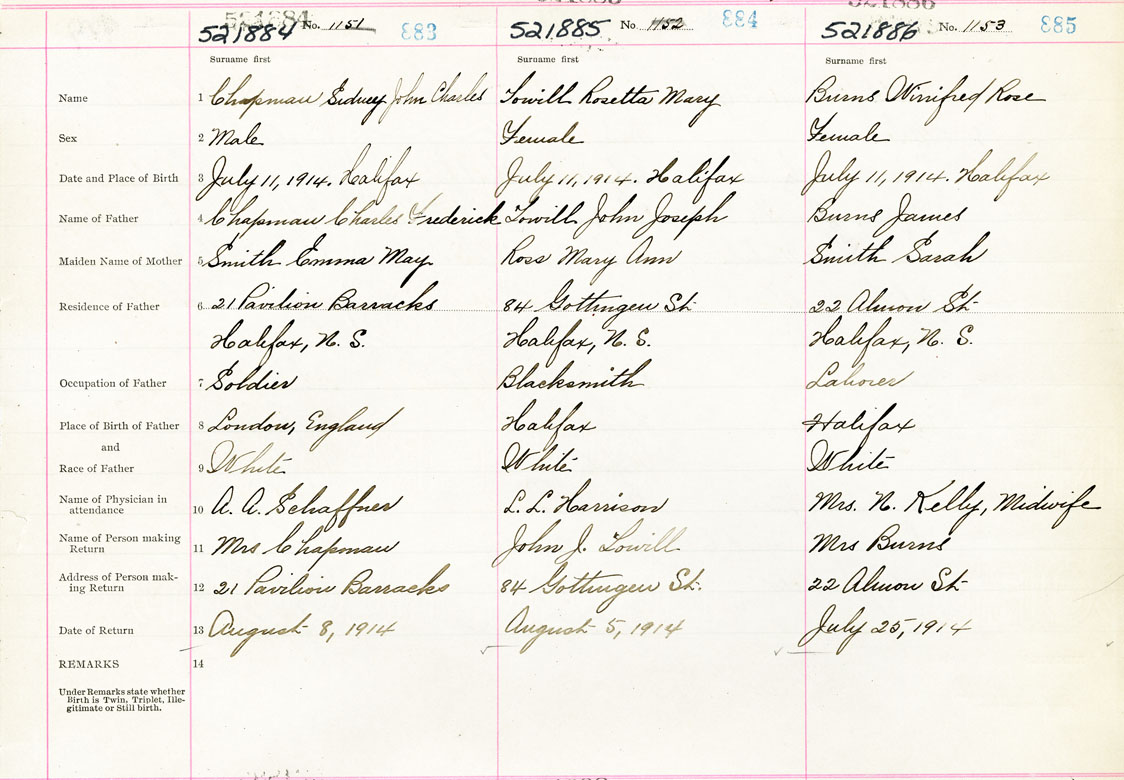 521884 No. 1151 883 521885 No. 1152 884 521886 No. 1153 885
Surname first Surname first Surname first
Name 1 Chapman Sidney John Charles Towill Rosetta Mary Burns Winifred Rose
Sex 2 Male Female Female
Date and Place of Birth 3 July 11, 1914. Halifax July 11, 1914. Halifax July 11, 1914. Halifax
Name of Father 4 Chapman Charles Frederick Towill John Joseph Burns James
Maiden Name of Mother 5 Smith Emma May Ross Mary Ann Smith Sarah
Residence of Father 6 21 Pavilion Barracks 84 Gottingen St. 22 Almon St.
Halifax, N. S. Halifax, N. S. Halifax, N. S.
Occupation of Father 7 Soldier Blacksmith Laborer
Place of Birth of Father 8 London, England Halifax Halifax
and
Race of Father 9 White White White
Name of Physician in
attendance 10 A. A. Schaffner L. L. Harrison Mrs. N. Kelly, Midwife
Name of Person making
Return 11 Mrs Chapman John J. Towill Mrs Burns
Address of Person mak-
ing Return 12 21 Pavilion Barracks 84 Gottingen St. 22 Almon St.
Date of Return 13 August 8, 1914 August 5, 1914 July 25, 1914
REMARKS 14
Under Remarks state whether
Birth is Twin, Triplet, Ille-
gitimate or Still birth.